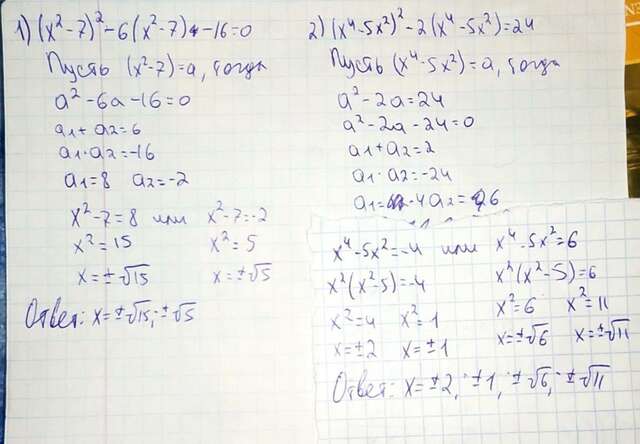 1) (x²-7)² - 6(x²-7) - 16 = 0
Пусть (x²-7) = a, тогда
a² - 6a - 16 = 0
a₁ + a₂ = 6
a₁ · a₂ = -16
a₁ = 8 a₂ = -2
x² - 7 = 8 или x² - 7 = -2
x² = 15 x² = 5
x = ±√15 x = ±√5
Ответ: x = ±√15; ±√5
2) (x⁴-5x²)² - 2(x⁴-5x²) = 24
Пусть (x⁴-5x²) = a, тогда
a² - 2a = 24
a² - 2a - 24 = 0
a₁ + a₂ = 2
a₁ · a₂ = -24
a₁ = -4 a₂ = 6
x⁴ - 5x² = -4 или x⁴ - 5x² = 6
x²(x²-5) = -4 x²(x²-5) = 6
x² = 4 x² = 1 x² = 6 x² = 11
x = ±2 x = ±1 x = ±√6 x = ±√11
Ответ: x = ±2; ±1; ±√6; ±√11